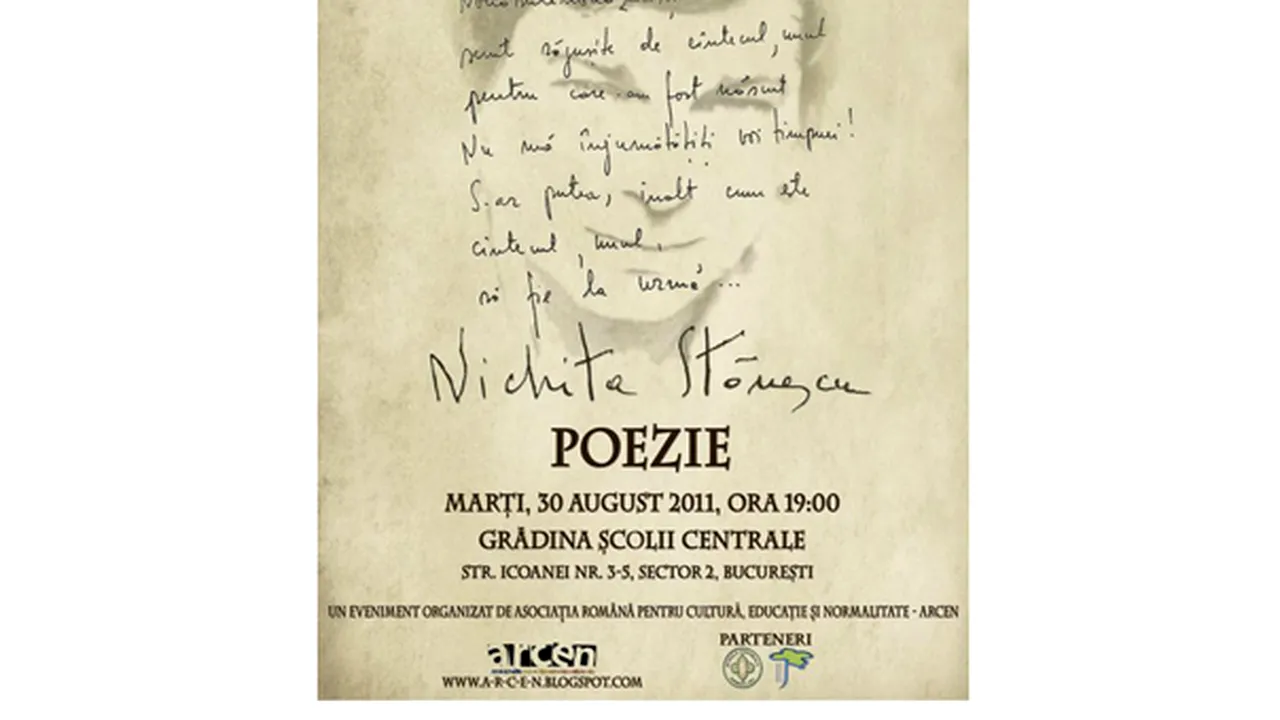 sunt răgușite de cîntecul, unul
pentru care-am fost născut
Nu mă înjumătățiți voi timpuri!
S-ar putea, înalt cum este
cîntecul, unul,
să fie la urmă...
Nichita Stănescu
POEZIE
MARȚI, 30 AUGUST 2011, ORA 19:00
GRĂDINA ȘCOLII CENTRALE
STR. ICOANEI NR. 3-5, SECTOR 2, BUCUREȘTI
UN EVENIMENT ORGANIZAT DE ASOCIAȚIA ROMÂNĂ PENTRU CULTURĂ, EDUCAȚIE ȘI NORMALITATE - ARCEN
arcen
PARTENERI
WWW.A-R-C-E-N.BLOGSPOT.COM